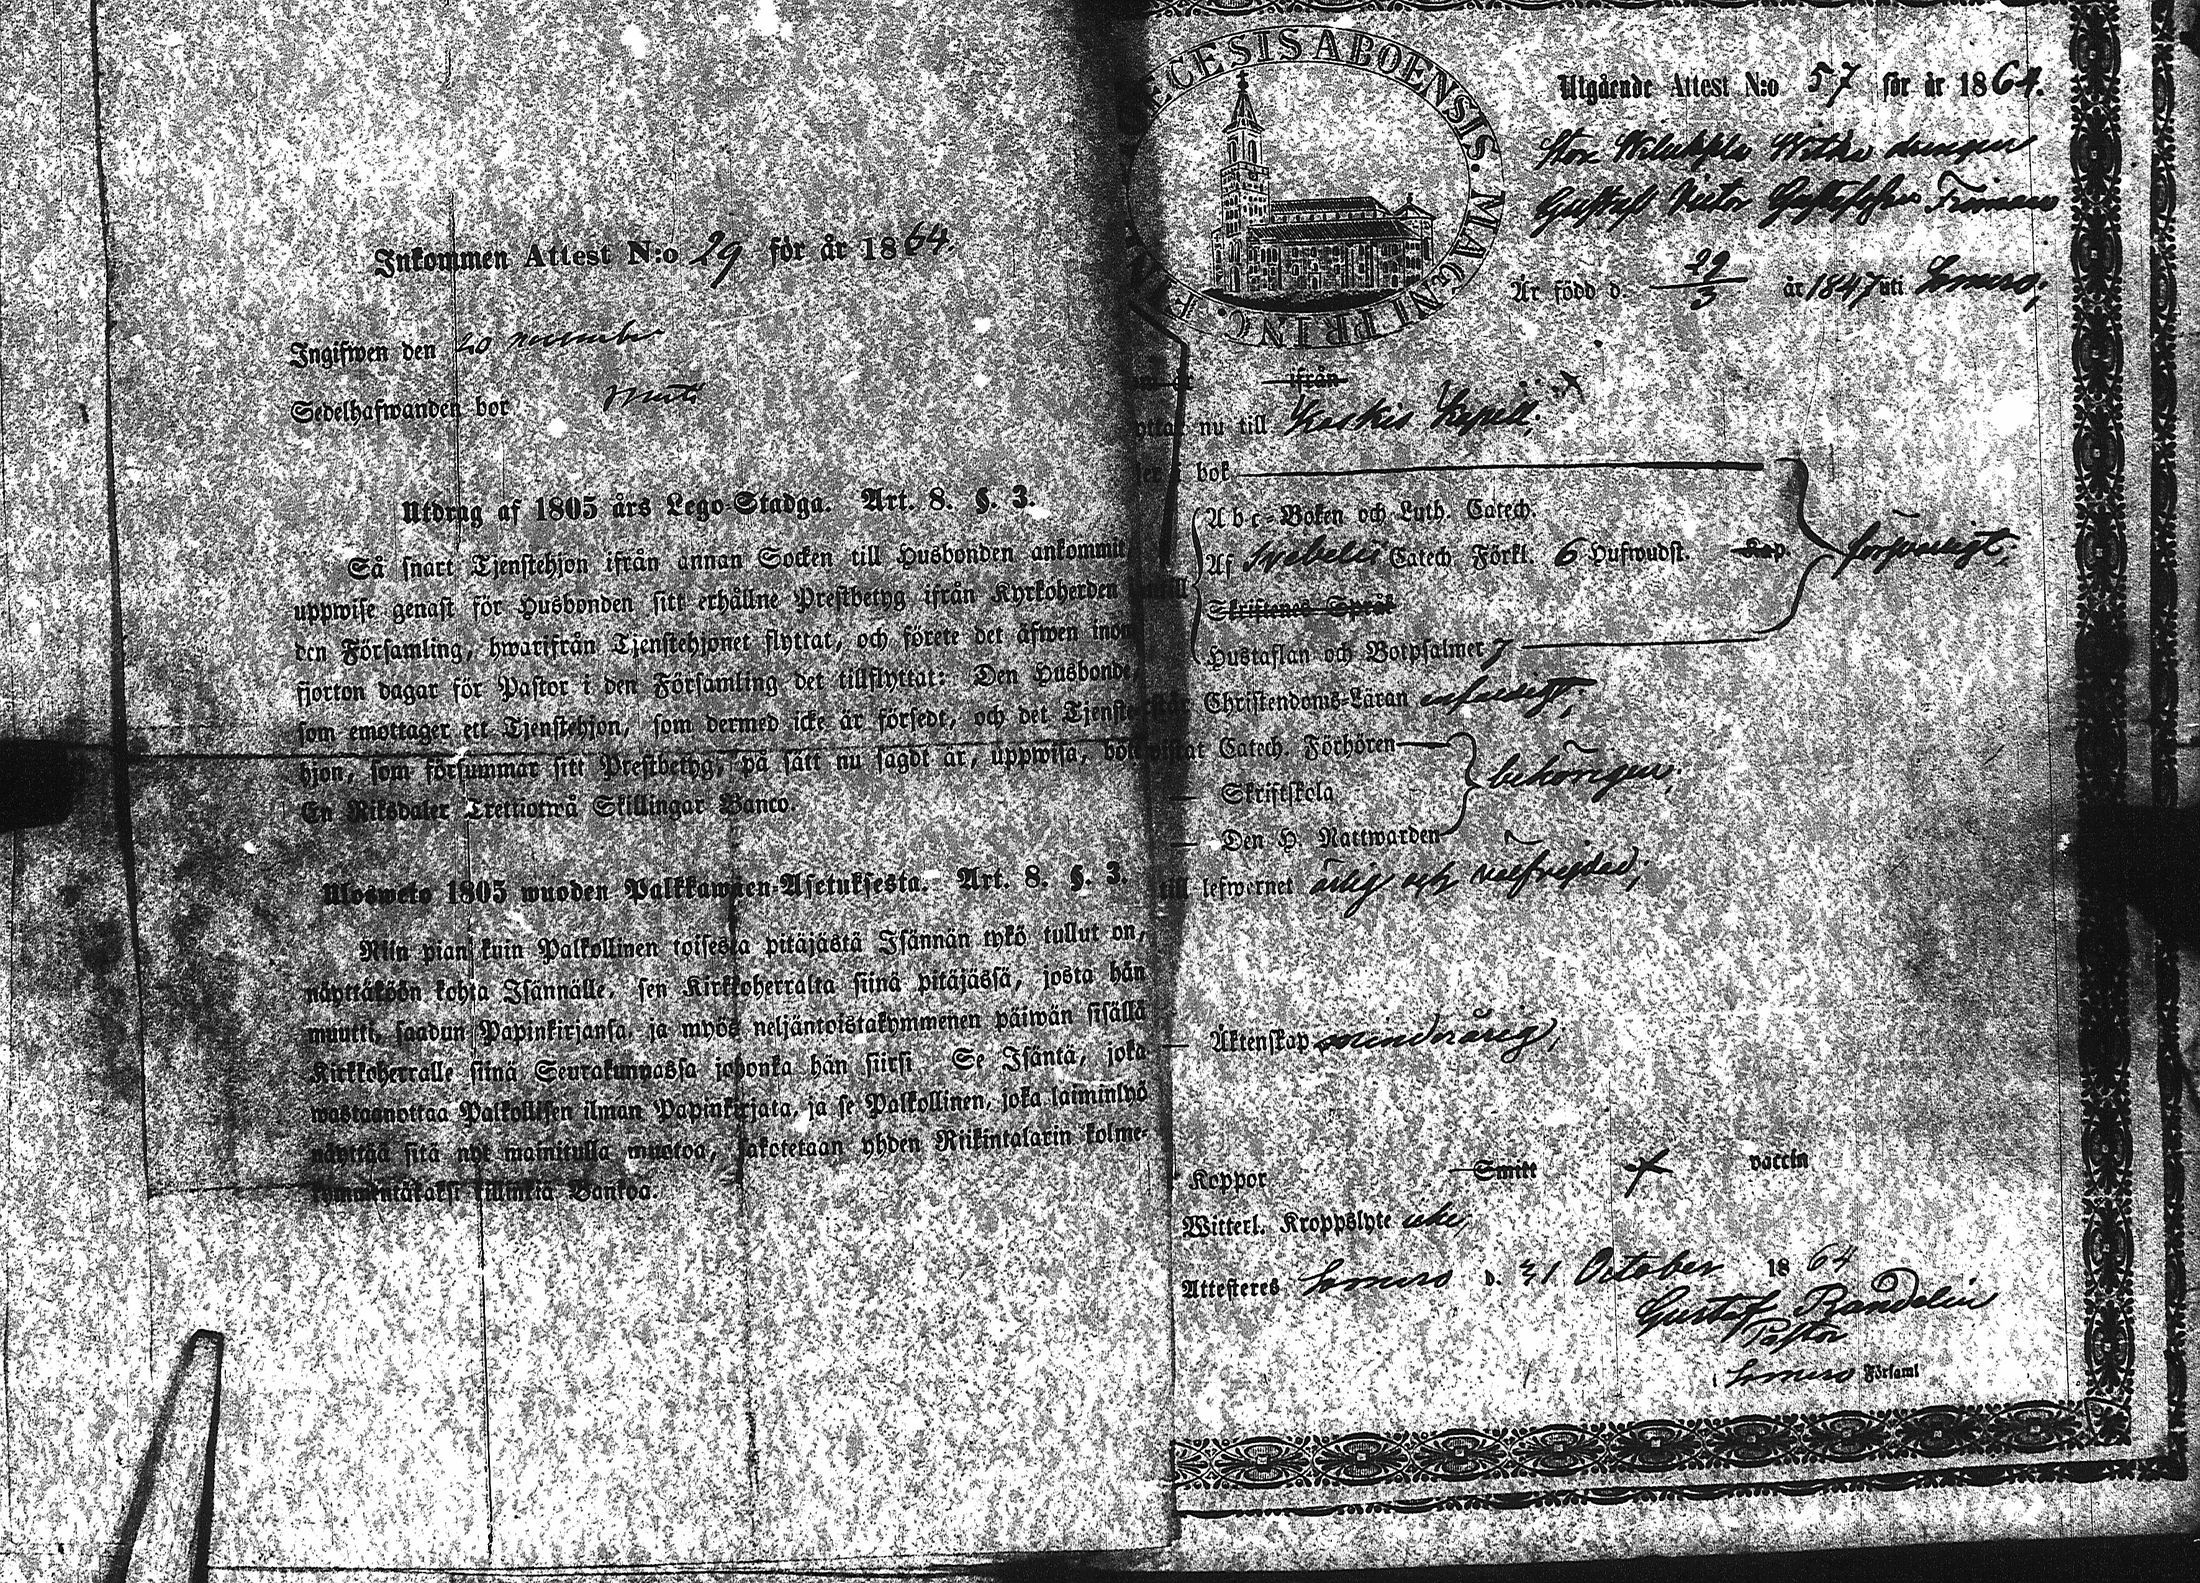 Inkommen Attest N:o 29 för år 1864.
Ingifwen den 20 november
Sedelhafwanden bor
Utdrag af 1805 års Lego-Stadga. Art. 8. §. 3.
Så snart Tjenstehjon ifrån annan Socken till Husbonden ankommit
uppwise genast för Husbonden sitt erhållne Prestbetyg ifrån Kyrkoherden
den Församling, hwarifrån Tjenstehjonet flyttat, och förete det äfwen inom
fjorton dagar för Pastor i den Församling det tillflyttat: Den Husbonde,
som emottager ett Tjenstehjon, som dermed icke är försedt, och det Tjenste-
hjon, som försummar sitt Prestbetyg, på sätt nu sagdt är, uppwisa, böte
En Riksdaler Trettiotwå Skillingar Banco.
Ulosweto 1805 wuoden Palkkawäen-Asetuksesta. Art. 8. §. 3.
Niin pian kuin Palkollinen toisesta pitäjästä Isännän tykö tullut on,
näyttäköön kohta Isännälle, sen Kirkkoherralta siinä pitäjässä, josta hän
muutti, saadun Papinkirjansa, ja myös neljäntoistakymmenen päiwän sisällä
Kirkkoherralle siinä Seurakunnassa johonka hän siirsi Se Isäntä, joka
wastaanottaa Palkollisen ilman Papinkirjata, ja se Palkollinen, joka laiminlyö
näyttää sitä nyt mainitulla muotoa, sakotetaan yhden Riikintalarin kolme-
kymmentäkaksi killinkiä Bankoa.
ECESIS ABOENSIS. MAGNI PRINC.
Utgående Attest N:o 57 för år 1864.
Stor Wiluksela drengen
Gustaf Victor Gustafsson
Är född d. 29/3 år 1847 uti Somero;
ifrån
nu till Koskis Kapell;
i bok
Abc-Boken och Luth. Catech.
Af Svebelii Catech Förkl. 6 Hufwudst. Kap. försvarligt;
Skriftenes Språk
Hustaflan och Botpsalmer 7
Christendoms-Läran
Catech. Förhören
Skriftskola behörigen;
Den H. Nattwarden
till lefwernet ärlig och välfrejdad;
Äktenskap minderårig,
Koppor Smitt vaccin
Witterl. Kroppslyte icke,
Attesteres Somero d. 31 October 1864
Gustaf Randelin
Pastor
i Somero Församl